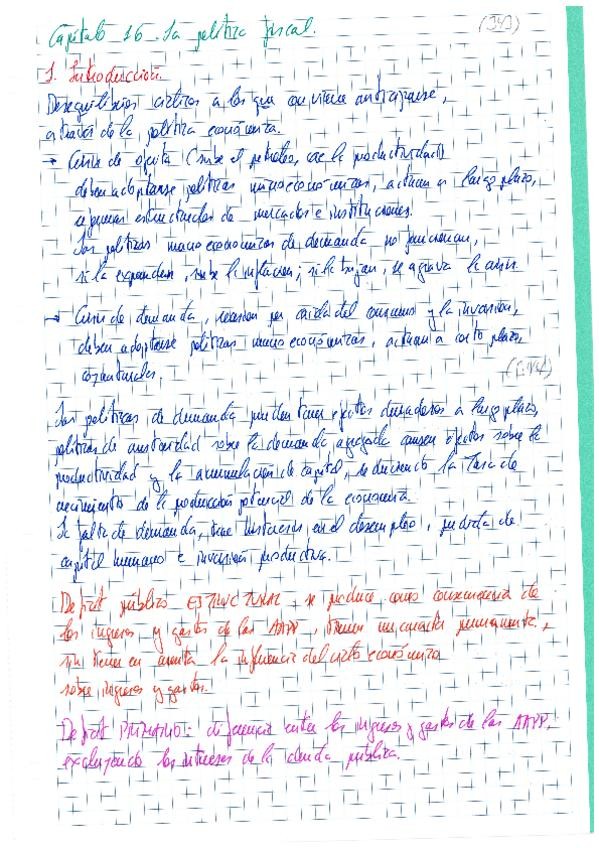 Capítulo 16. La política fiscal. (343)
1. Introducción.
Desequilibrios cíclicos a los que conviene anticiparse,
a través de la política económica.
→ Crisis de oferta (sube el petróleo, cae la productividad)
deben adoptarse políticas microeconómicas, actúan a largo plazo,
reformas estructurales de mercados e instituciones.
Las políticas macroeconómicas de demanda no funcionan,
si la expanden, sube la inflación; si la bajan, se agrava la crisis
→ Crisis de demanda, recesión por caída del consumo y la inversión,
deben adoptarse políticas macroeconómicas, actúan a corto plazo,
coyunturales.
Las políticas de demanda pueden tener efectos duraderos a largo plazo,
políticas de austeridad sobre la demanda agregada causen efectos sobre la
productividad y la acumulación de capital, reduciendo la Tasa de
crecimiento de la producción potencial de la economía.
La falta de demanda, trae histéresis en el desempleo, pérdida de
capital humano e inversión productiva.
Déficit público ESTRUCTURAL, se produce como consecuencia de
los ingresos y gastos de las AAPP, tienen un carácter permanente,
sin tener en cuenta la influencia del ciclo económico
sobre ingresos y gastos.
Déficit PRIMARIO: diferencia entre los ingresos y gastos de las AAPP,
excluyendo los intereses de la deuda pública.